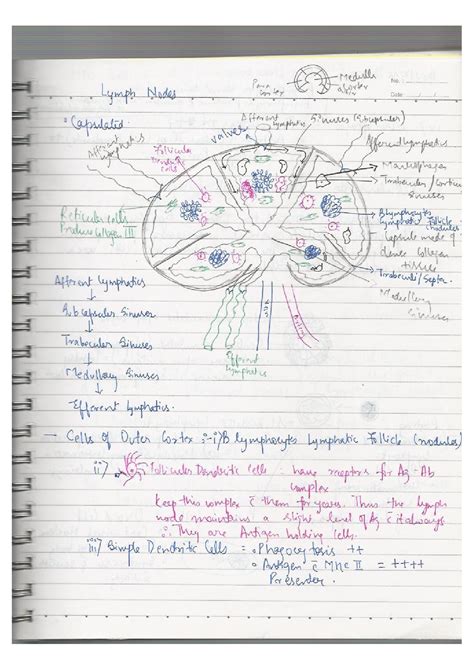 No.
Date
Para Cortex
Medulla
Cortex
Lymph Nodes
Afferent lymphatics
Sinuses (Subcapsular)
• Capsulated
valves
Afferent lymphatics
Afferent lymphatics
Follicular Dendritic cells
Macrophages
Trabecular / Cortical Sinuses
Reticular Cells
Produce Collagen III
B lymphocytes
Lymphatic Follicle (nodules)
Capsule made of dense collagen tissue
Trabeculi / Septa
Medullary Sinuses
Afferent lymphatics
↓
Subcapsular Sinuses
↓
Trabecular Sinuses
↓
Medullary Sinuses
↓
Efferent lymphatics.
Efferent lymphatics
Vein
Artery
— Cells of Outer Cortex :- i) B lymphocytes Lymphatic Follicle (nodules)
ii) Follicular Dendritic Cells : have receptors for Ag-Ab
complex
Keep this complex c̄ them for years. Thus the lymph
node maintains a slight level of Ag c̄ it always
∴ They are Antigen holding cells.
iii) Simple Dendritic Cells = • Phagocytosis ++
• Antigen c̄ MHC II = ++++
Presenter.